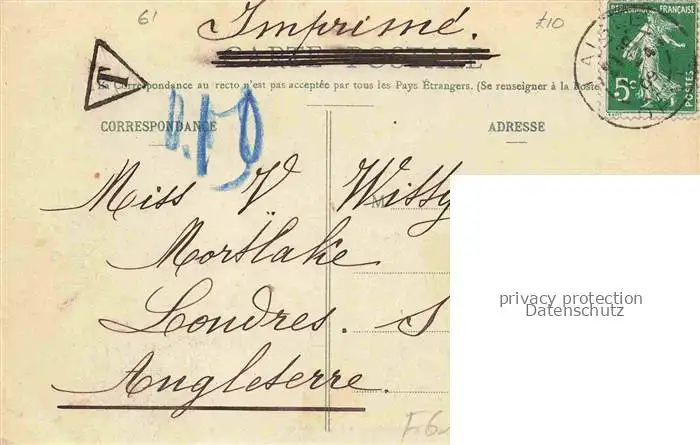 61
Imprimé.
£10
RÉPUBLIQUE FRANÇAISE
CARTE POSTALE
T
La Correspondance au recto n'est pas acceptée par tous les Pays Étrangers. (Se renseigner à la Poste
5c
POSTES
CORRESPONDANCE
ADRESSE
Miss V Witty
M
Mortlake
Londres. S
Angleterre.
privacy protection
Datenschutz